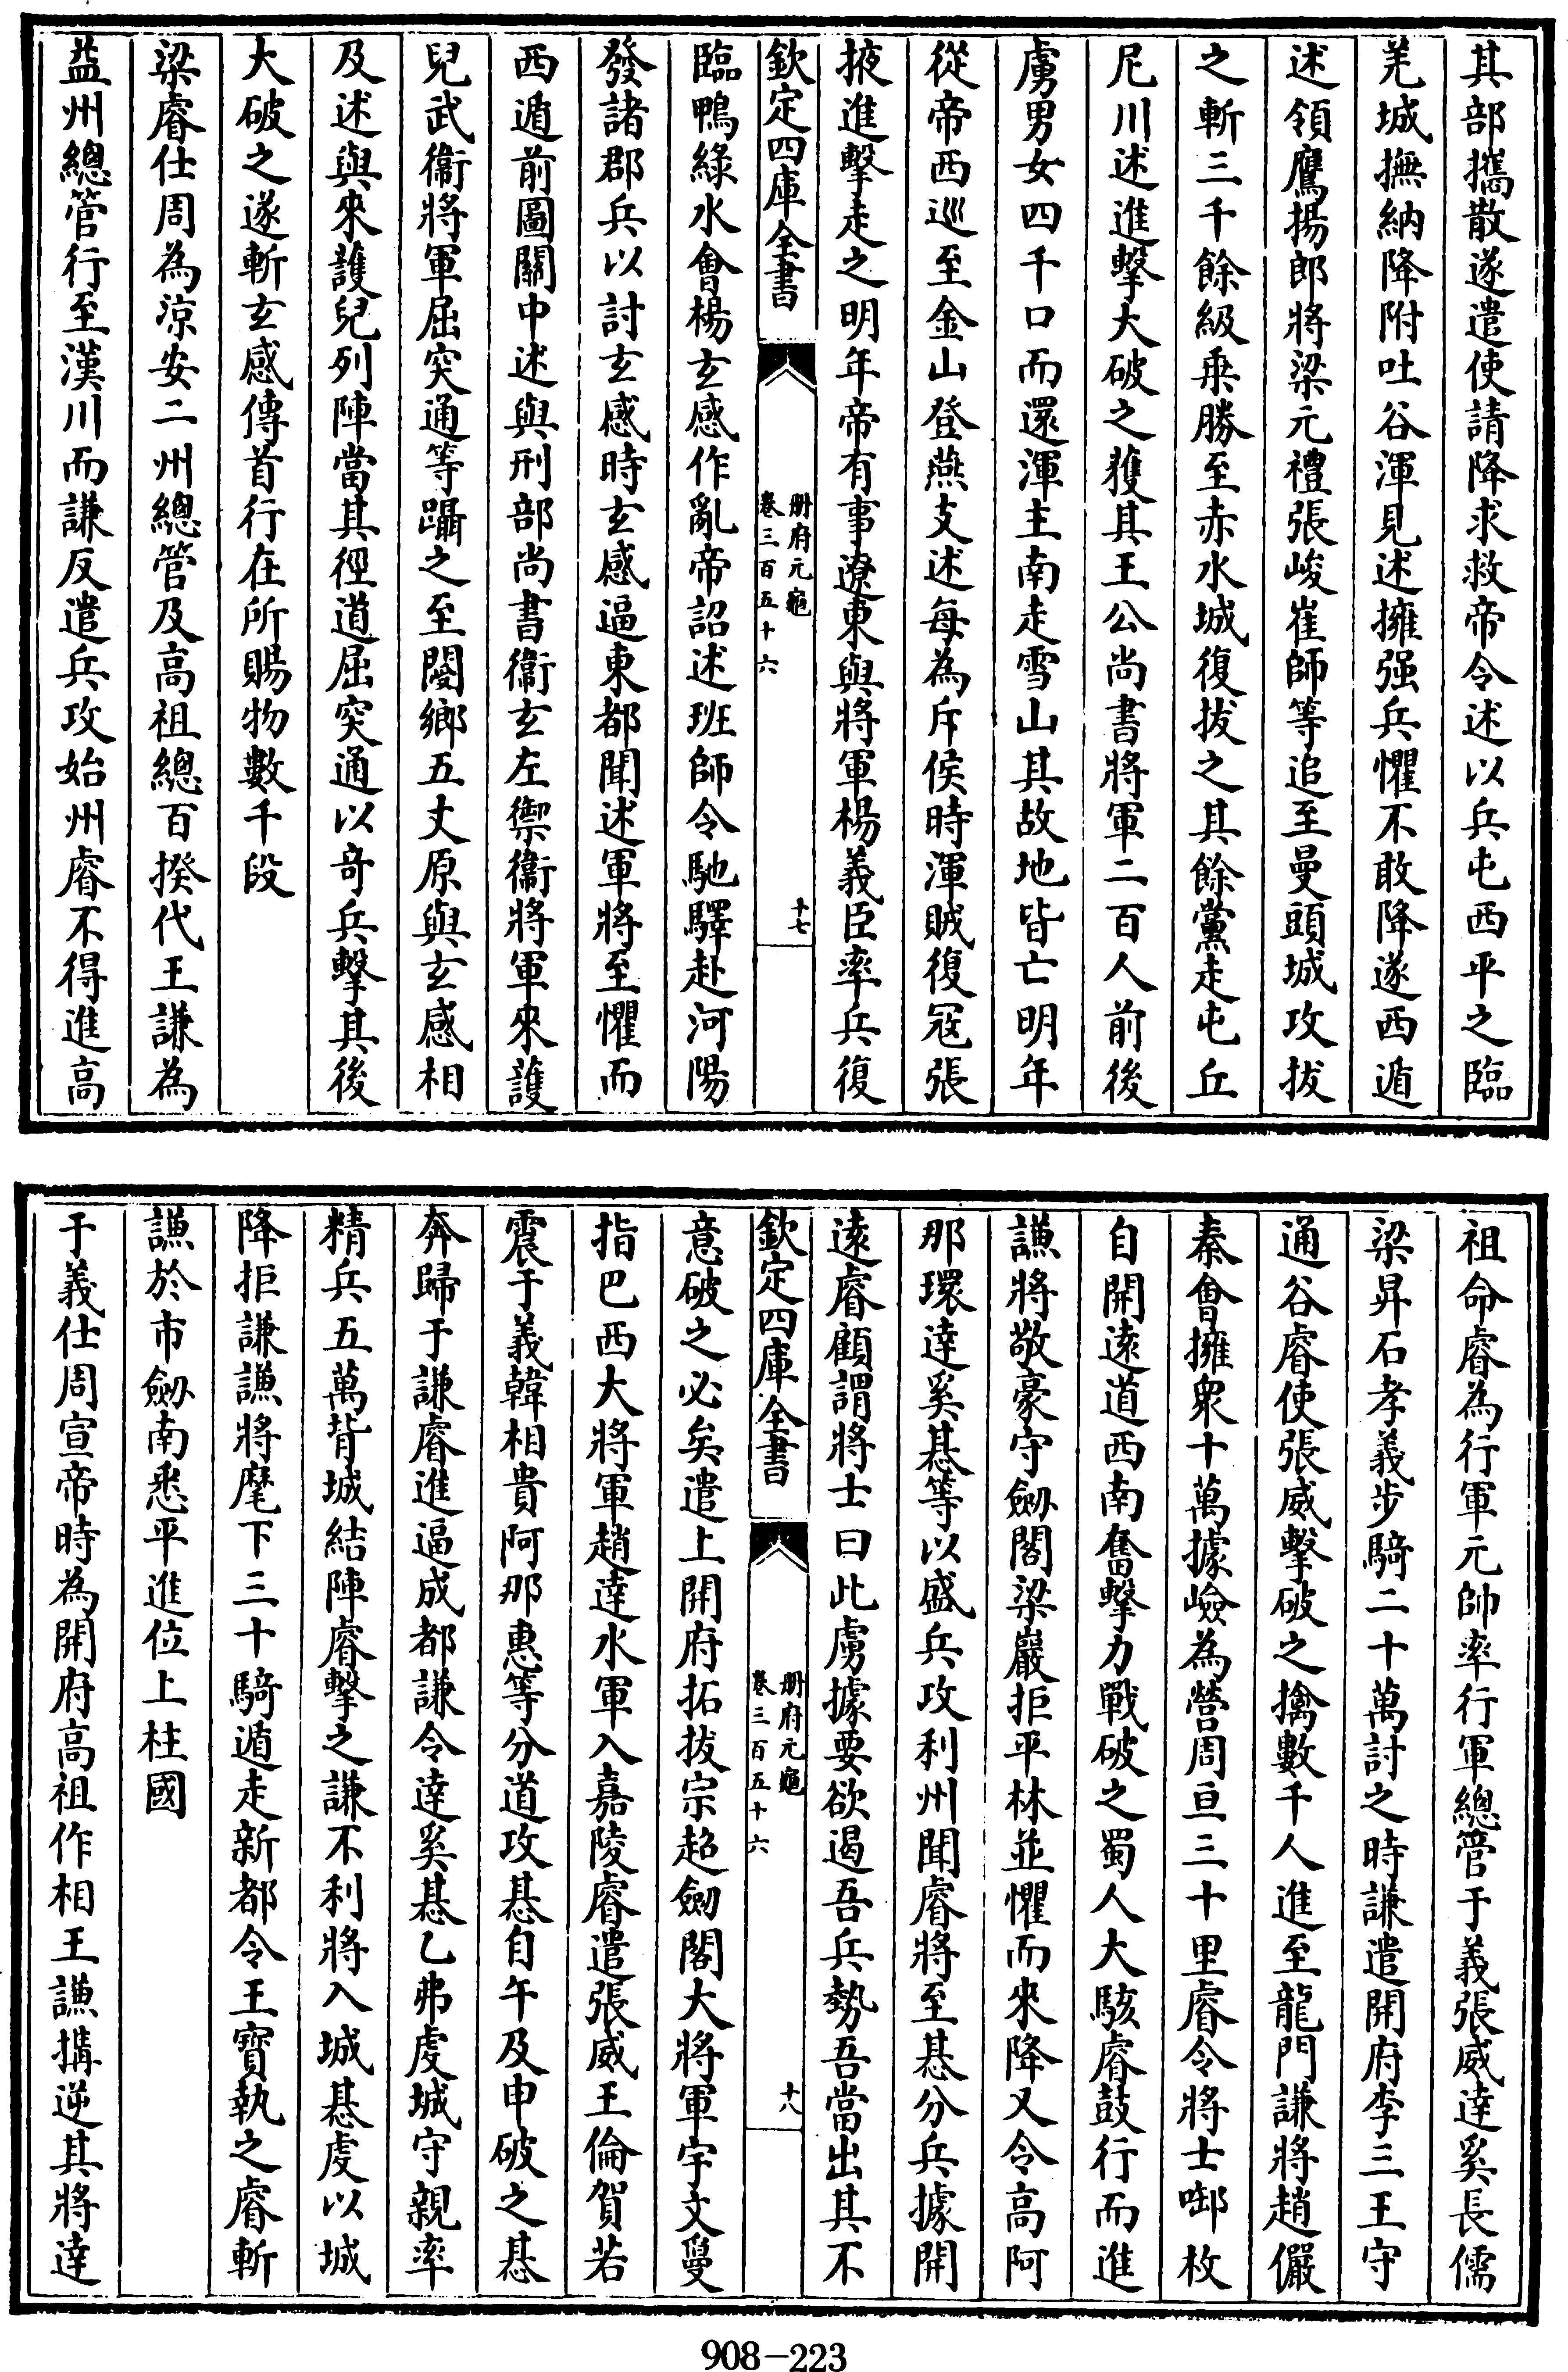 其部攜散遂遣使請降求救帝令述以兵屯西平之臨
羌城撫納降附吐谷渾見述擁强兵懼不敢降遂西遁
述領鷹揚郎將梁元禮張峻崔師等追至曼頭城攻拔
之斬三千餘級乗勝至赤水城復拔之其餘黨走屯丘
尼川述進擊大破之獲其王公尚書將軍二百人前後
虜男女四千口而還渾主南走雪山其故地皆亡明年
從帝西巡至金山登燕支述每為斥侯時渾賊復冦張
掖進擊走之明年帝有事遼東與將軍楊義臣率兵復
欽定四庫全書
册府元龜
卷三百五十六
十七
臨鴨綠水會楊玄感作亂帝詔述班師令馳驛赴河陽
發諸郡兵以討玄感時玄感逼東都聞述軍將至懼而
西遁前圖關中述與刑部尚書衞玄左禦衞將軍來護
兒武衞將軍屈突通等躡之至閿鄉五丈原與玄感相
及述與來護兒列陣當其徑道屈突通以竒兵擊其後
大破之遂斬玄感傳首行在所賜物數千段
梁睿仕周為涼安二州總管及高祖總百揆代王謙為
益州總管行至漢川而謙反遣兵攻始州睿不得進高
祖命睿為行軍元帥率行軍總管于義張威達奚長儒
梁昇石孝義步騎二十萬討之時謙遣開府李三王守
通谷睿使張威擊破之擒數千人進至龍門謙將趙儼
秦會擁衆十萬據嶮為營周亘三十里睿令將士啣枚
自開逺道西南奮擊力戰破之蜀人大駭睿鼓行而進
謙將敬豪守劒閣梁巖拒平林並懼而來降又令高阿
那環達奚惎等以盛兵攻利州聞睿將至惎分兵據開
逺睿顧謂將士曰此虜據要欲遏吾兵勢吾當出其不
欽定四庫全書
册府元龜
卷三百五十六
十八
意破之必矣遣上開府拓拔宗趍劒閣大將軍宇文夐
指巴西大將軍趙達水軍入嘉陵睿遣張威王倫賀若
震于義韓相貴阿那惠等分道攻惎自午及申破之惎
奔歸于謙睿進逼成都謙令達奚惎乙弗䖍城守親率
精兵五萬背城結陣睿擊之謙不利將入城惎䖍以城
降拒謙謙將麾下三十騎遁走新都令王寳執之睿斬
謙於市劒南悉平進位上柱國
于義仕周宣帝時為開府高祖作相王謙搆逆其將達
908-223